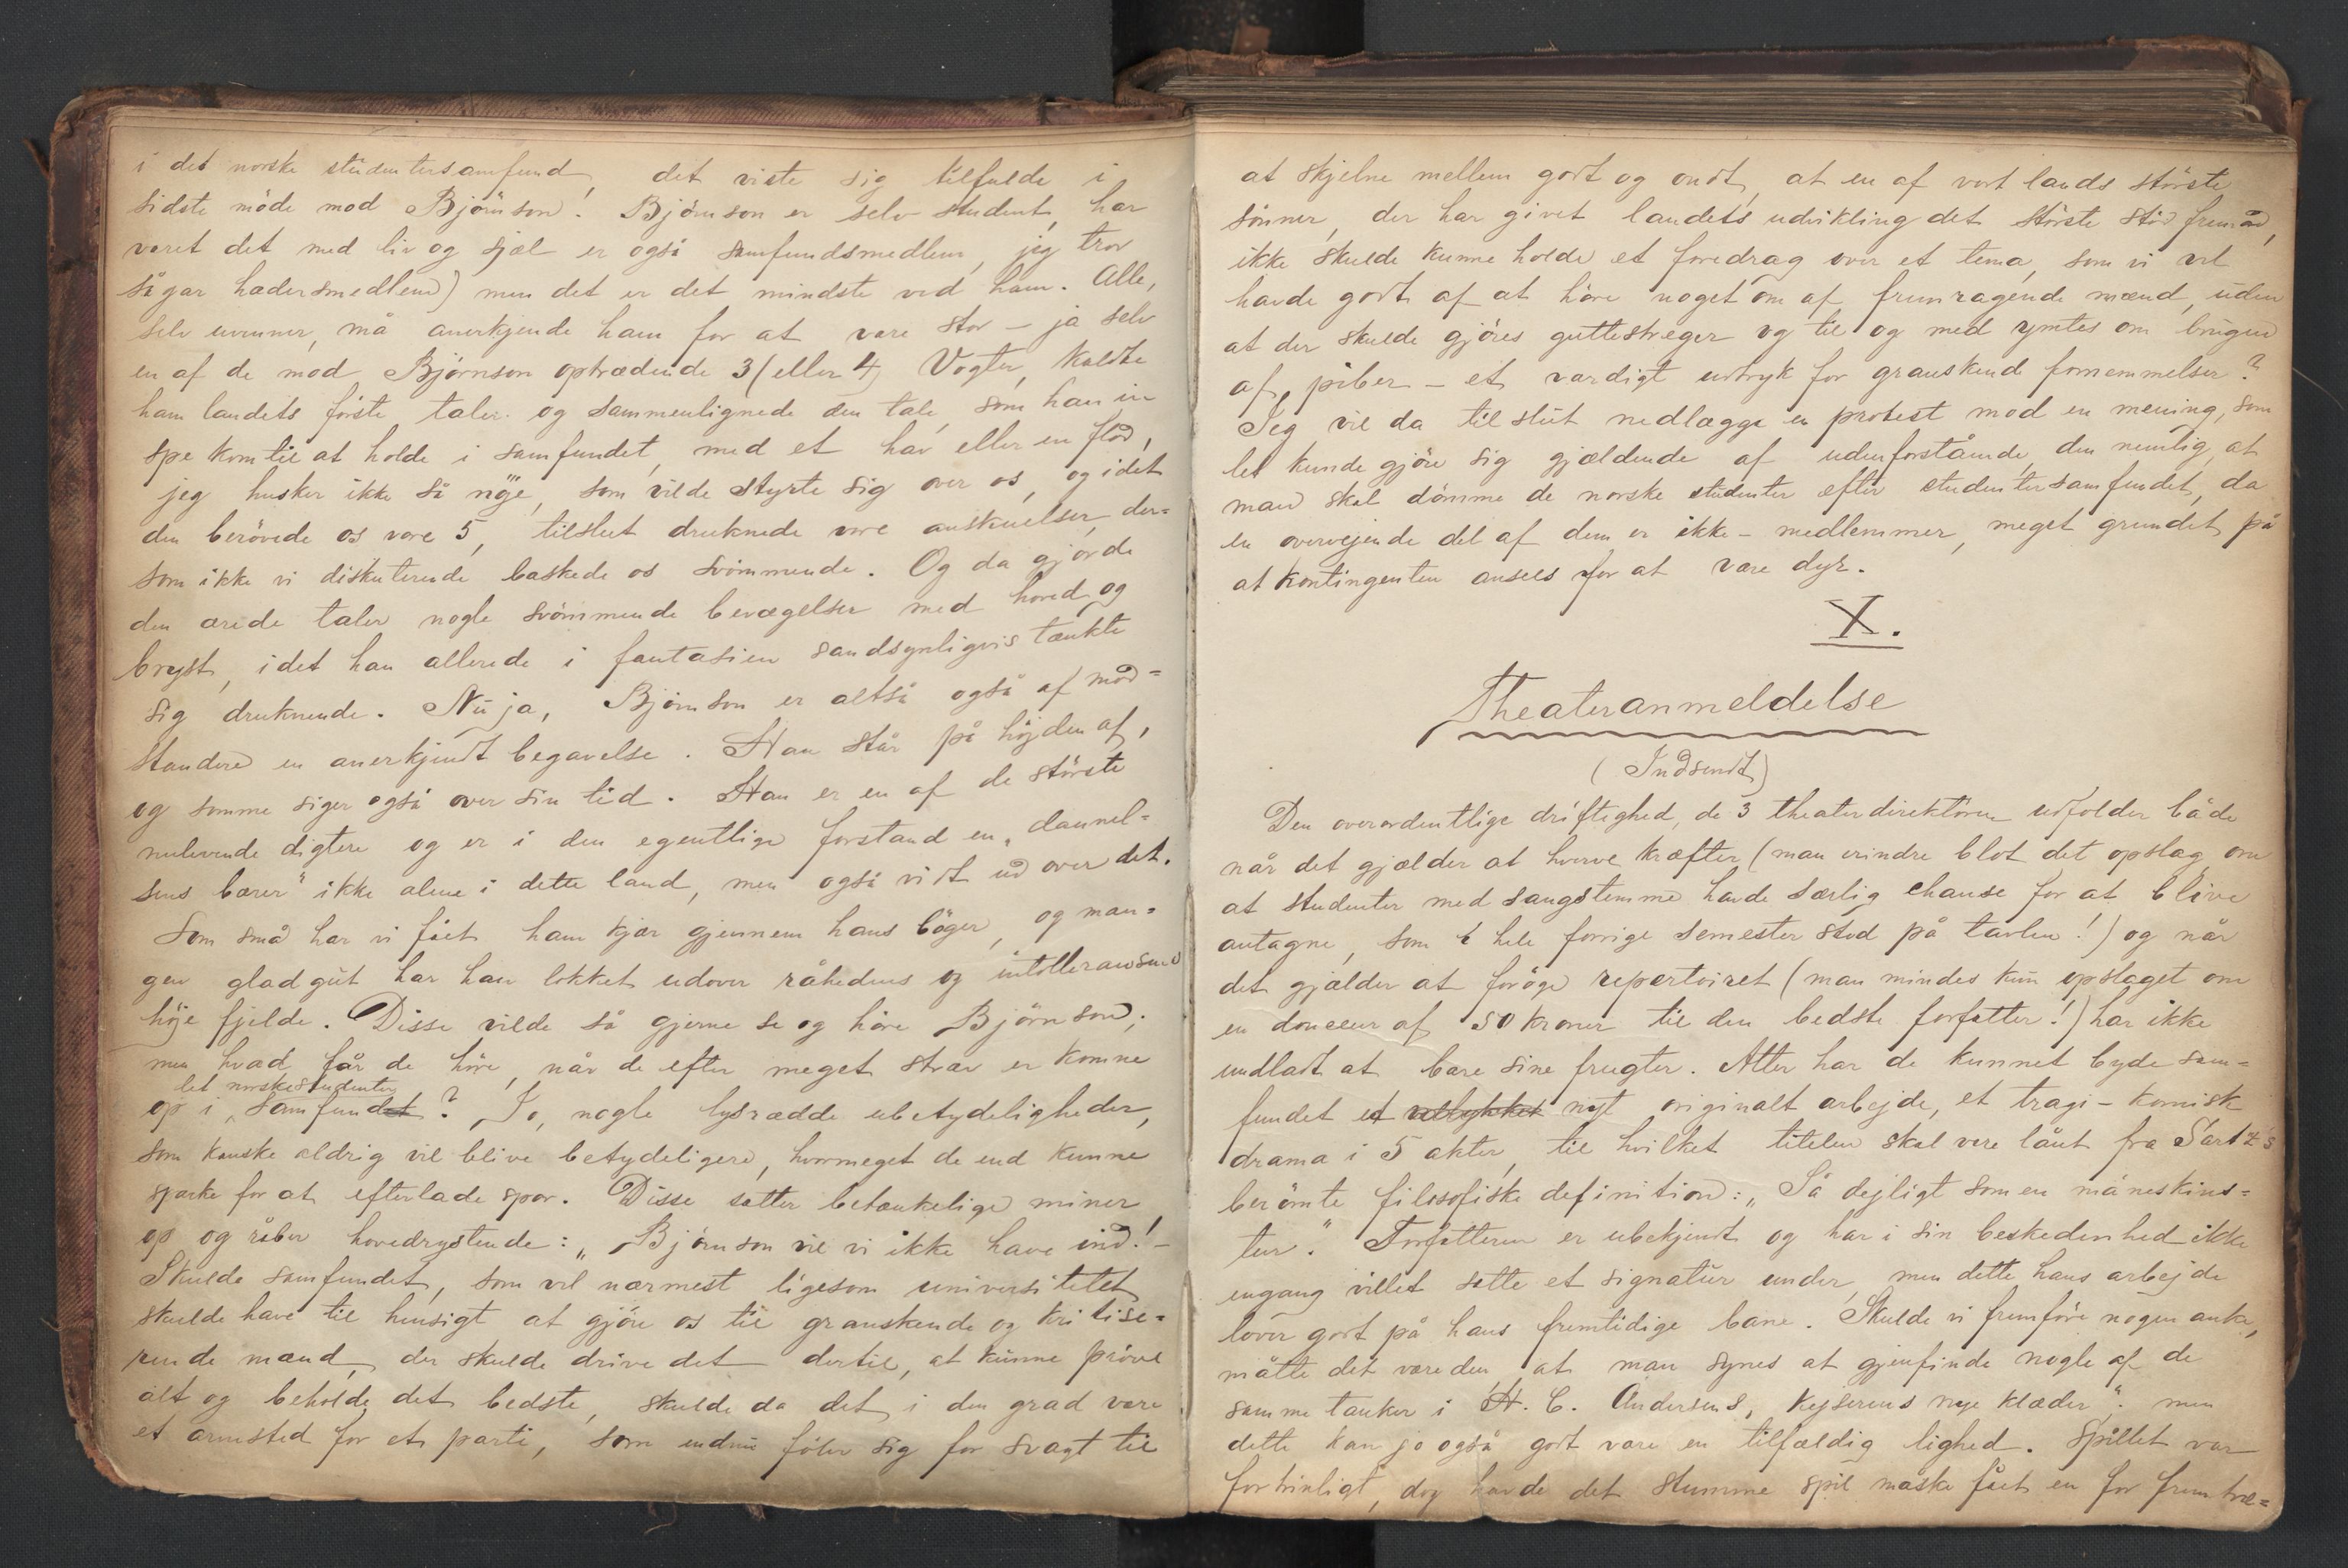 i det norske studentersamfund, det viste sig tilfulde i
sidste möde mod Björnson! Björnson er selv student, har
været det med liv og sjæl er også samfundsmedlem, jeg tror
sågar hædersmedlem) men det er det mindste ved ham. Alle,
selv uvenner, må anerkjende ham for at være stor – ja selv
en af de mod Björnson optrædende 3 (eller 4) Vogter, kaldte
ham landets förste taler og sammenlignede den tale, som han in
spe kom til at holde i samfundet, med et hav eller en flod,
jeg husker ikke så nöje, som vilde styrte sig over os, og idet
den berövede os vore 5, tilslut druknede vore anskuelser, der=
som ikke vi diskuterende baskede os svömmende. Og da gjorde
den ærede taler nogle svömmende bevægelser med hoved og
bryst, idet han allerede i fantasien sandsynligvis tænkte
sig druknende. Nu ja, Björnson er altså også af mod=
standere en anerkjendt begavelse. Han står på höjden af,
og somme siger også over sin tid. Han er en af de störste
nulevende digtere og er i den egentlige forstand en „dannel=
sens bærer" ikke alene i dette land, men også vidt ud over det.
Som små har vi fået ham kjær gjennem hans böger, og man=
gen glad gut har han lokket udover råhedens og intolleransens
höje fjelde. Disse vilde så gjerne se og höre Björnson;
men hvad får de höre, når de efter meget stræv er komne
det norske studenter
op i „samfundet? Jo, nogle lysrædde ubetydeligheder,
som kanske aldrig vil blive betydeligere, hvormeget de end kunne
sparke for at efterlade spor. Disse sætter betænkelige miner
op og råber hovedrystende: „Björnson vil vi ikke have ind! –
Skulde samfundet, som vel nærmest ligesom universitetet
skulde have til hensigt at gjöre os til granskende og kritise=
rende mænd, der skulde drive det dertil, at kunne pröve
alt og beholde det bedste, skulde da det i den grad være
et arnested for et parti, som endnu föler sig for svagt til
at skjelne mellem godt og ondt, at en af vort lands störste
sönner, der har givet landets udvikling det störste stöd fremad,
ikke skulde kunne holde et foredrag over et tema, som vi vel
havde godt af at höre noget om af fremragende mænd, uden
at der skulde gjöres guttestreger og til og med ymtes om brugen
af piber – et værdigt udtryk for granskend fornemmelser?
Jeg vil da tilslut nedlægge en protest mod en mening, som
let kunde gjöre sig gjældende af udenforstående, den nemlig, at
man skal dömme de norske studenter efter studentersamfundet, da
en overvejende del af dem er ikke – medlemmer, meget grundet på
at kontingenten ansees for at være dyr.
X.
Theateranmeldelse
(Indsendt)
Den overordentlige driftighed, de 3 theaterdirektörer udfolder både
når det gjælder at hverve kræfter (man erindre blot det opslag om
at studenter med sangstemme havde særlig chanse for at blive
antagne, som i hele forrige semester stod på tavlen!) og når
det gjælder at foröge repertoiret (man mindes kun opslaget om
en douceur af 50 kroner til den bedste forfatter!) har ikke
undladt at bære sine frugter. Atter har de kunnet byde sam=
fundet et vellykket nyt originalt arbejde, et tragi-komisk
drama i 5 akter, til hvilket titelen skal være lånt fra Sartz's
berömte filosofiske definition: „Så dejligt som en måneskins=
tur." Forfatteren er ubekjendt og har i sin beskedenhed ikke
engang villet sætte et signatur under, men dette hans arbejde
lover godt på hans fremtidige bane. Skulde vi fremföre nogen anke,
måtte det være den, at man synes at gjenfinde nogle af de
samme tanker i H. C. Andersens, kejserens nye klæder". men
dette kan jo også godt være en tilfældig lighed. Spillet var
fortrinligt, dog havde det stumme spil måske fået en for fremtræ=